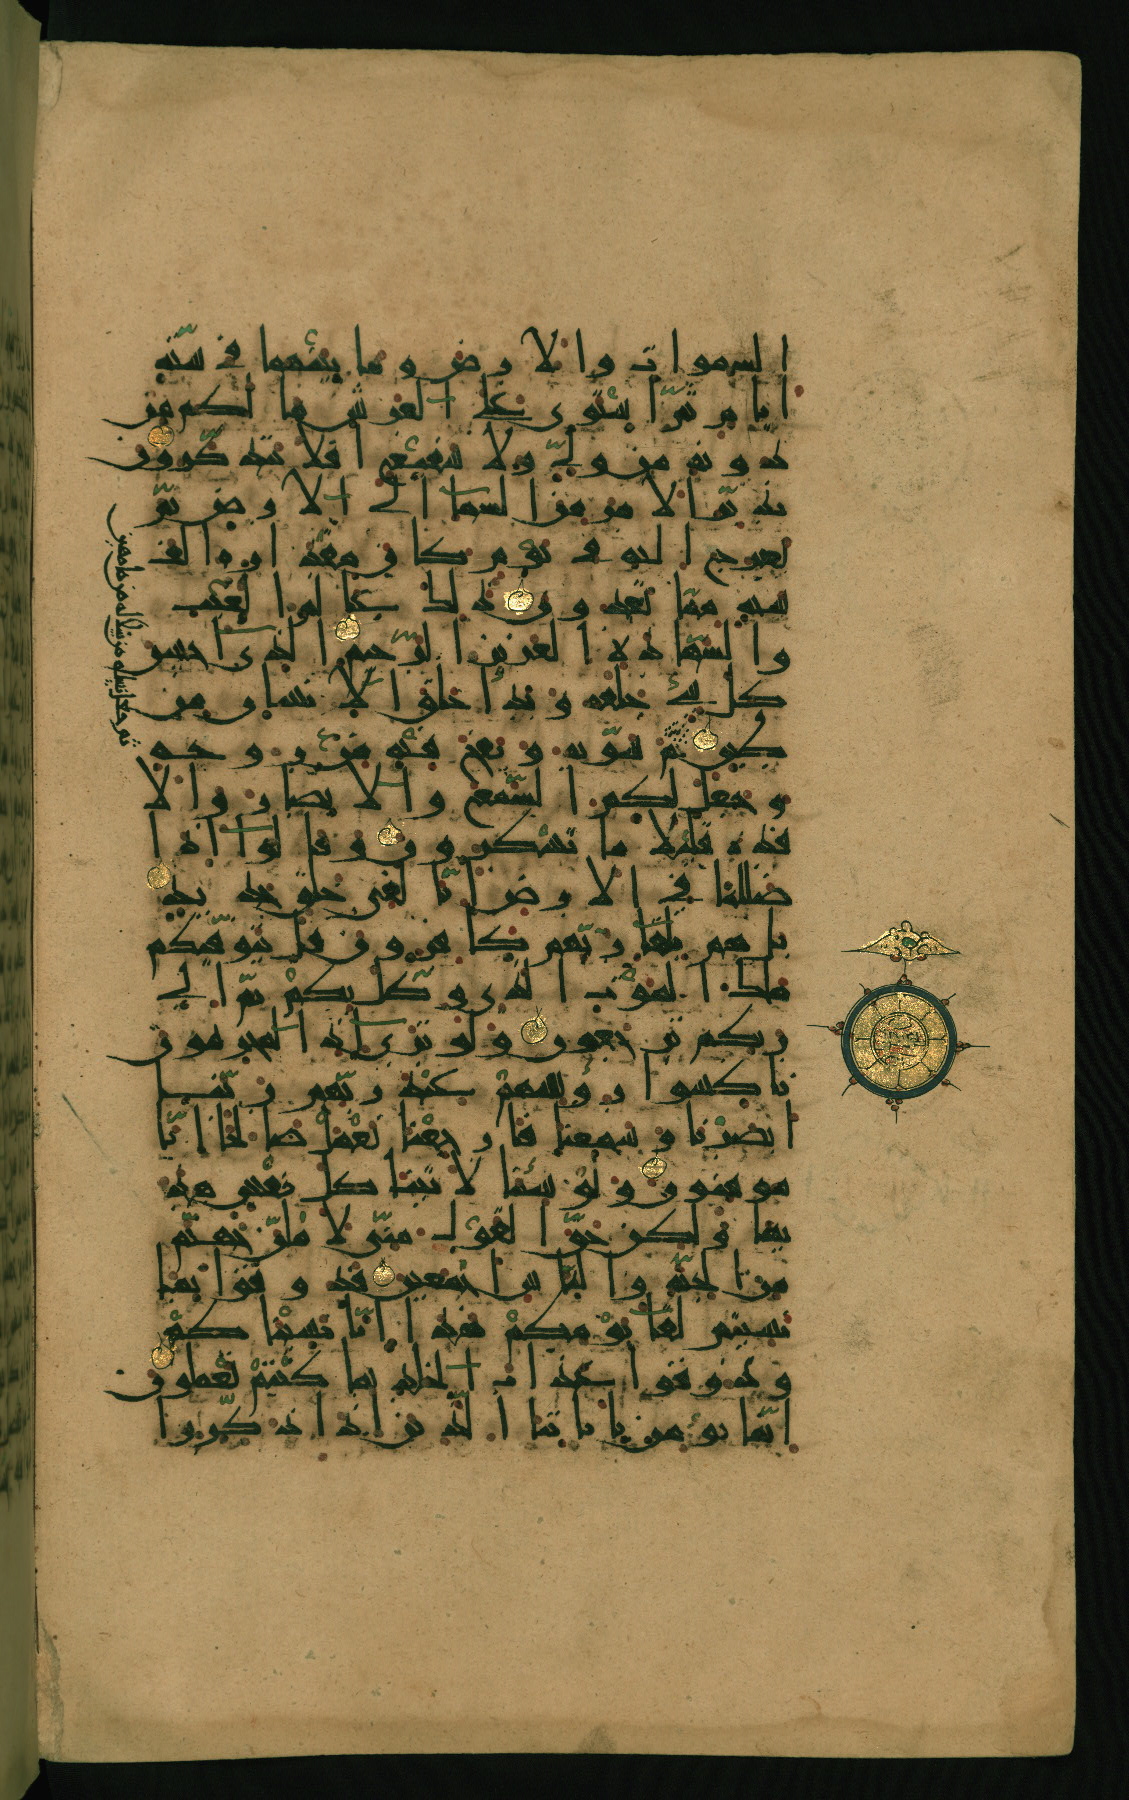 السموات والارض وما بينهما في ستة
ايام ثم استوى على العرش ما لكم من
دونه من ولي ولا شفيع افلا تتذكرون
يدبر الامر من السماء الى الارض ثم
يعرج اليه في يوم كان مقداره الف
سنة مما تعدون ذلك عالم الغيب
والشهادة العزيز الرحيم الذي احسن
كل شيء خلقه وبدأ خلق الانسان من
طين ثم سويه ونفخ فيه من روحه
ثم جعل نسله من سلالة من ماء مهين
وجعل لكم السمع والابصار والا
فدة قليلا ما تشكرون وقالوا ااذا
ضللنا في الارض اانا لفي خلق جديد
بل هم بلقاء ربهم كافرون قل يتوفيكم
ملك الموت الذي وكل بكم ثم الى
ربكم ترجعون ولو ترى اذ المجرمون
ناكسوا رؤسهم عند ربهم ربنا
ابصرنا وسمعنا فارجعنا نعمل صالحا انا
موقنون ولو شئنا لاتينا كل نفس هد
يها ولكن حق القول مني لاملأن جهنم
من الجنة والناس اجمعين فذوقوا بما
نسيتم لقاء يومكم هذا انا نسيناكم
وذوقوا عذاب الخلد بما كنتم تعملون
انما يؤمن باياتنا الذين اذا ذكروا